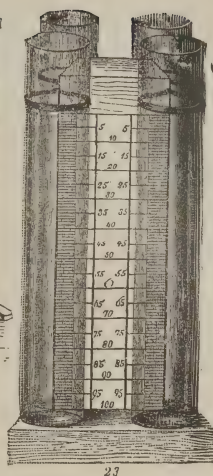 5 5
10
15 15
20
25 25
30
35 35
40
45 45
50
55 55
65 65
70
75 75
80
85 85
90
95 95
100
23